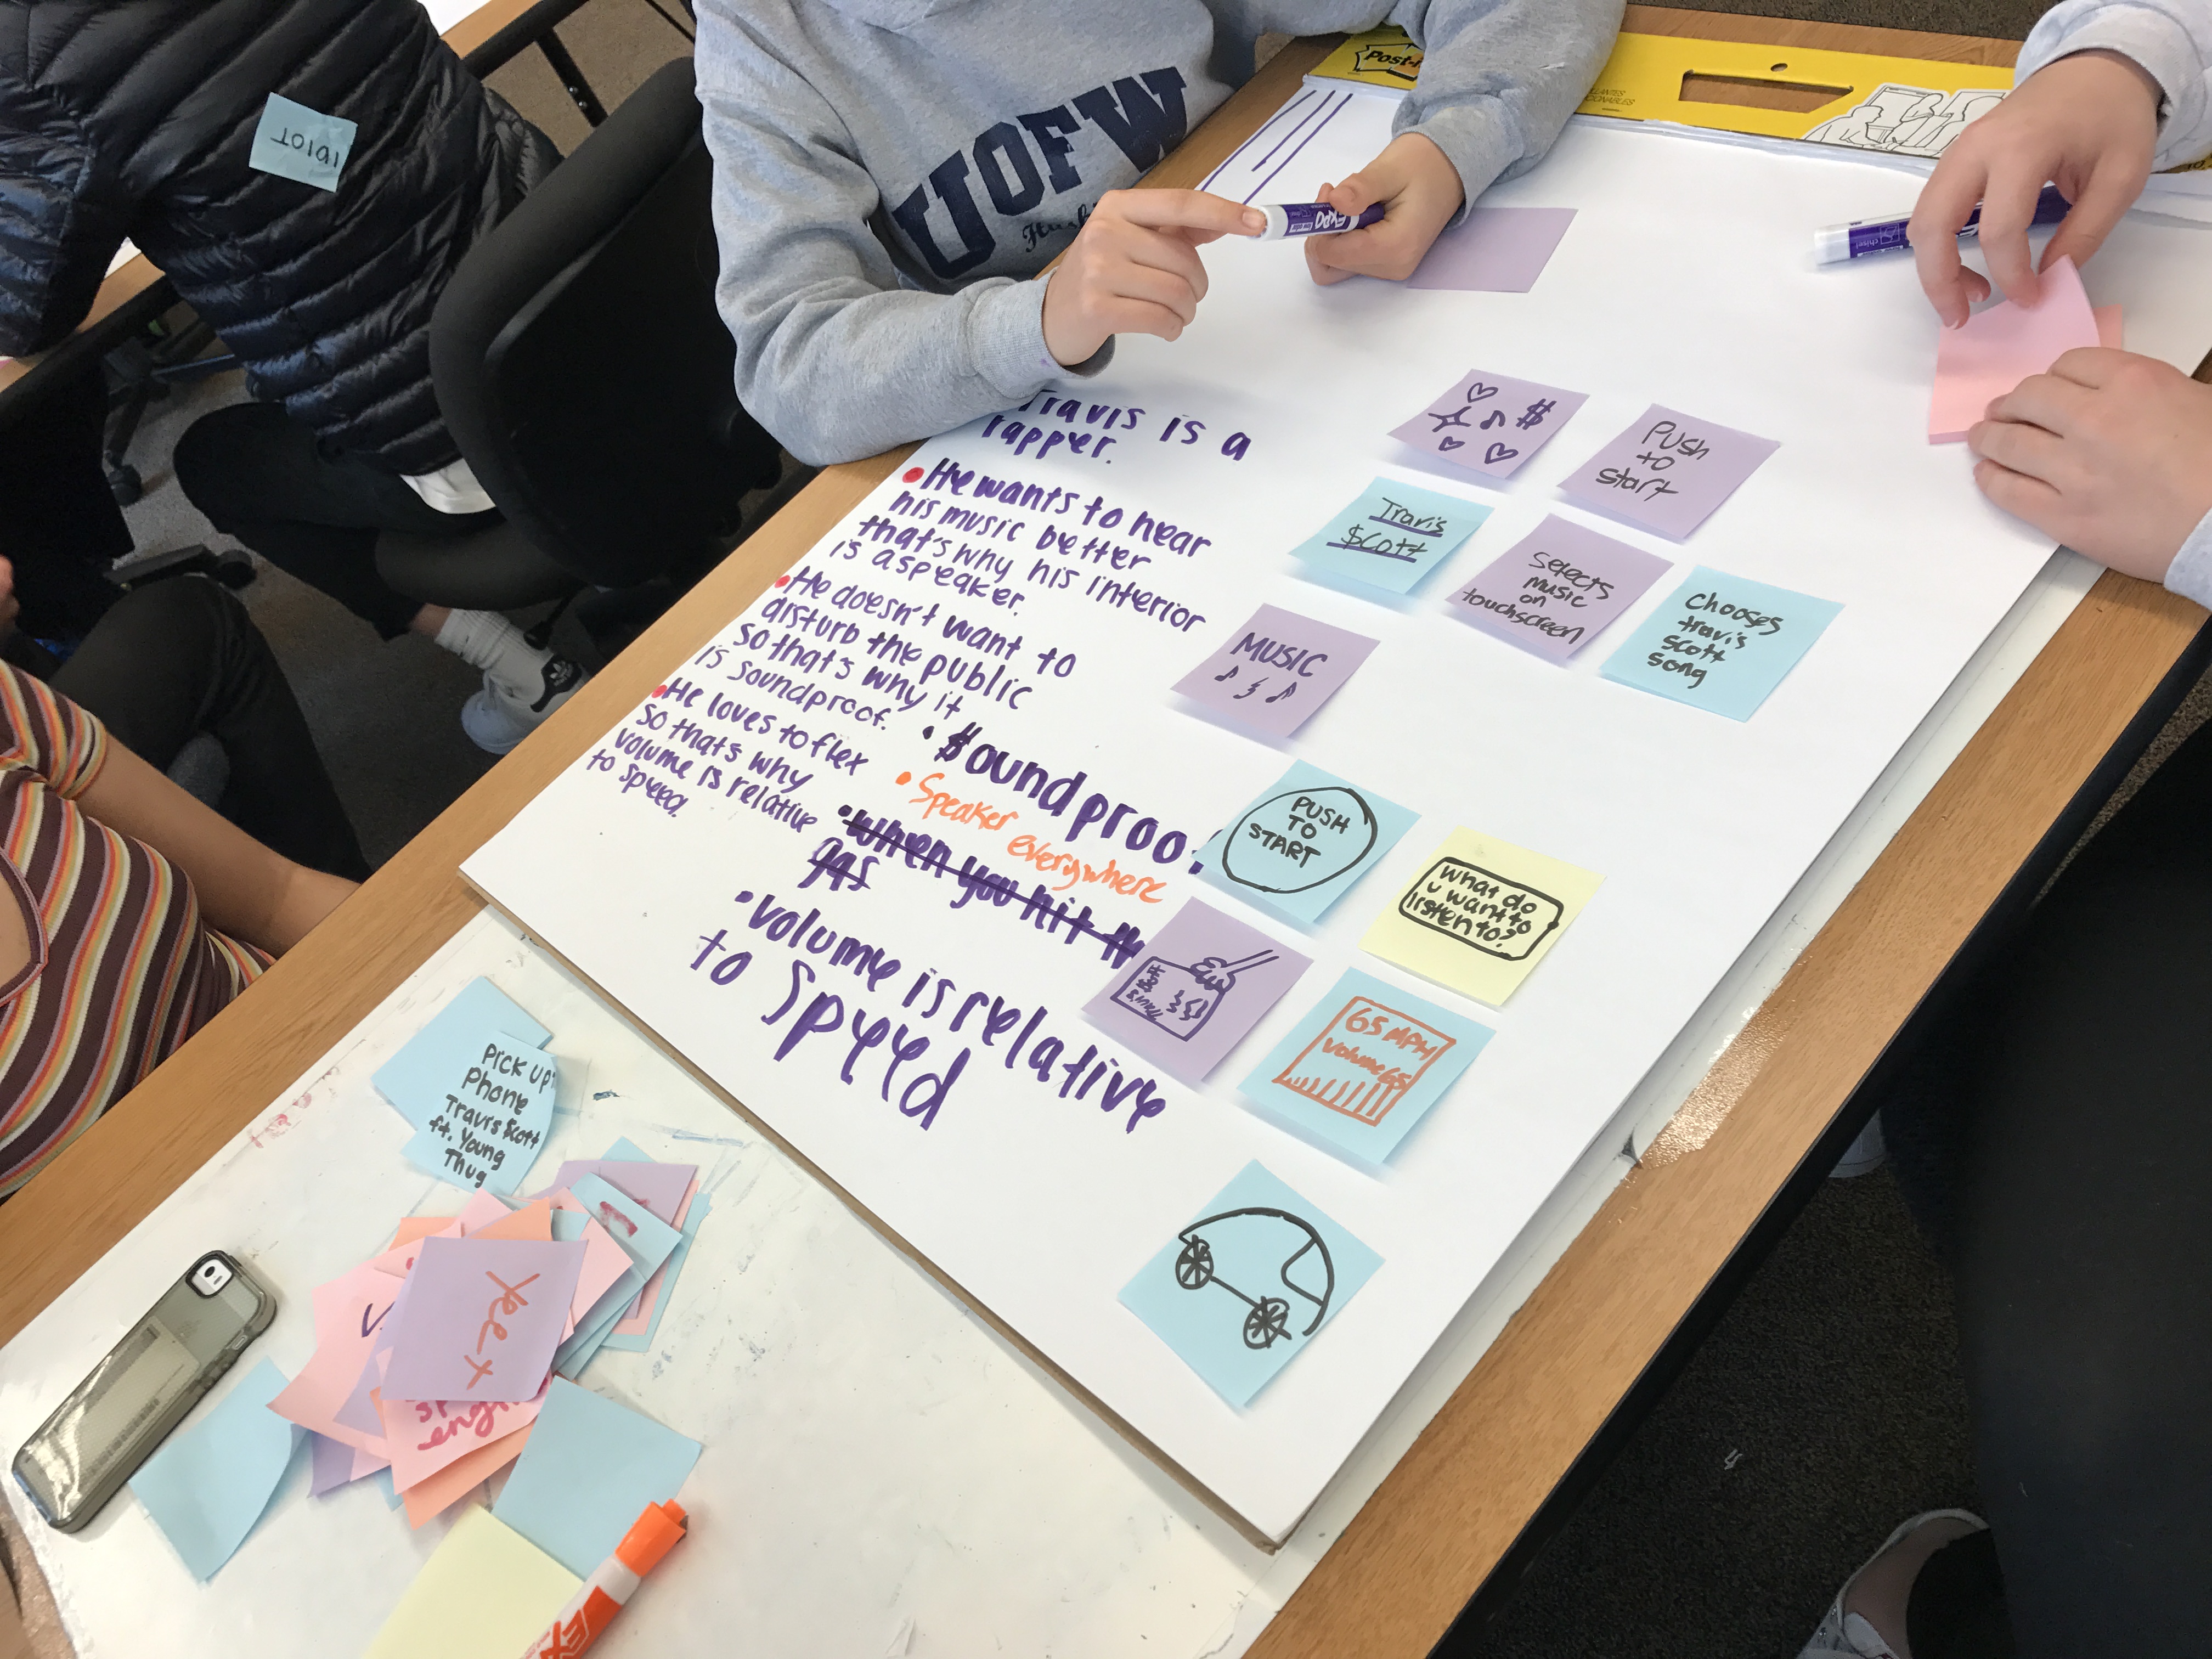 IDIOT
UOFW
Post-i
EXPO
chisel
Travis is a
rapper.
He wants to hear
his music better
that's why his interior
is a speaker.
He doesn't want to
disturb the public
so that's why it
is soundproof.
He loves to flex
so that's why
volume is relative
to speed.
$oundproof
Speaker
everywhere
when you hit th
gas
volume is relative
to speed
$
Push
to
start
Travis
$cott
Selects
music
on
touchscreen
Chooses
travis
scott
song
MUSIC
PUSH
TO
START
What do
u want to
listen to?
65 MPH
volume 65
Pick up
Phone
Travis $cott
ft. Young
Thug
Yeet